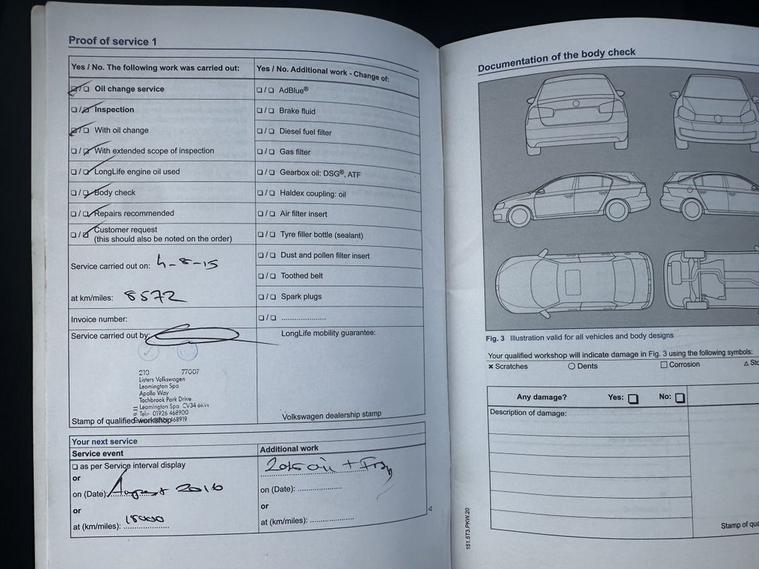 Proof of service 1
Yes / No. The following work was carried out:
Yes / No. Additional work - Change of:
☑/☐ Oil change service
☐/☐ AdBlue®
☐/☑ Inspection
☐/☐ Brake fluid
☑/☐ With oil change
☐/☐ Diesel fuel filter
☐/☑ With extended scope of inspection
☐/☐ Gas filter
☐/☑ LongLife engine oil used
☐/☐ Gearbox oil: DSG®, ATF
☐/☑ Body check
☐/☐ Haldex coupling: oil
☐/☑ Repairs recommended
☐/☐ Air filter insert
☐/☑ Customer request
(this should also be noted on the order)
☐/☐ Tyre filler bottle (sealant)
Service carried out on: 4-8-15
☐/☐ Dust and pollen filter insert
☐/☐ Toothed belt
at km/miles: 8572
☐/☐ Spark plugs
Invoice number:
☐/☐ ....................
Service carried out by:
LongLife mobility guarantee:
210 77007
Listers Volkswagen
Leamington Spa
Apollo Way
Tachbrook Park Drive
Leamington Spa CV34
Tel: 01926 468900
Stamp of qualified workshop
Volkswagen dealership stamp
Your next service
Service event
Additional work
☐ as per Service interval display
or
on (Date): August 2016
on (Date): ....................
or
or
at (km/miles): 18000
at (km/miles): ....................
Documentation of the body check
Fig. 3 Illustration valid for all vehicles and body designs
Your qualified workshop will indicate damage in Fig. 3 using the following symbols:
× Scratches ○ Dents ☐ Corrosion
Any damage? Yes: ☐ No: ☐
Description of damage:
Stamp of
151.573.PKW.20